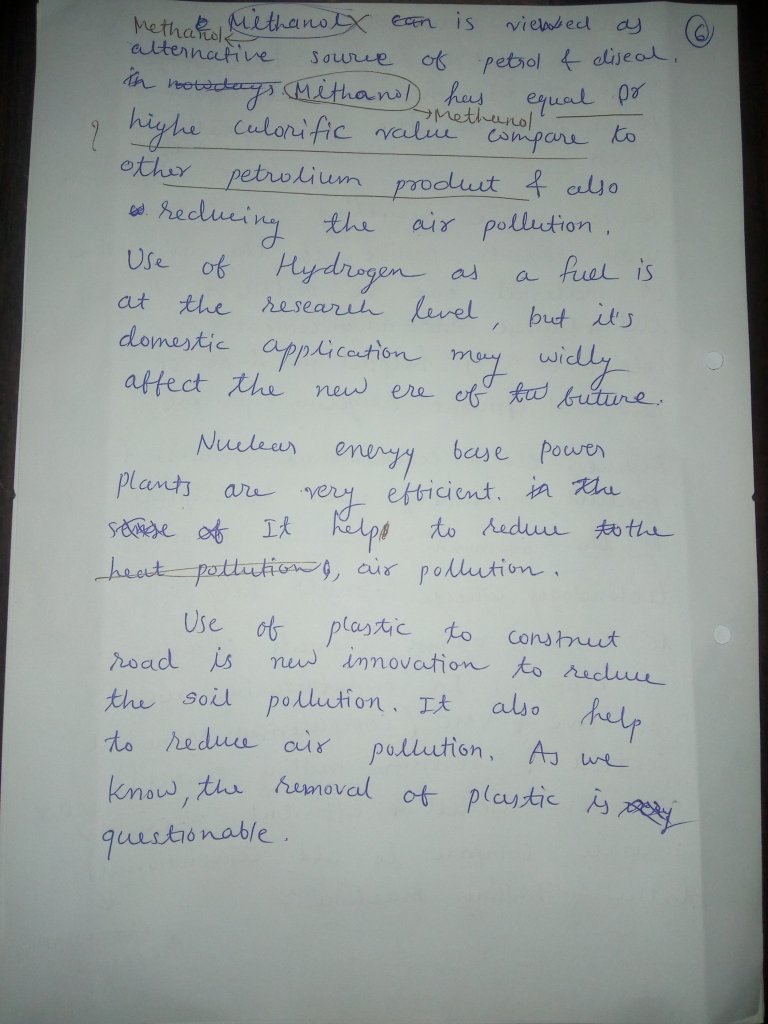 Methanol
Mithanol is viewed as
6
alternative source of petrol & diseal.
in nowdays Mithanol has equal or
→Methanol
? highe calorific value compare to
other petrolium product & also
reducing the air pollution.
Use of Hydrogen as a fuel is
at the research level, but it's
domestic application may widly
affect the new ere of buture.
Nuclear energy base power
plants are very efficient. in the
sense of It help to reduce the
heat pollution, air pollution.
Use of plastic to construct
road is new innovation to reduce
the soil pollution. It also help
to reduce air pollution. As we
know, the removal of plastic is
questionable.